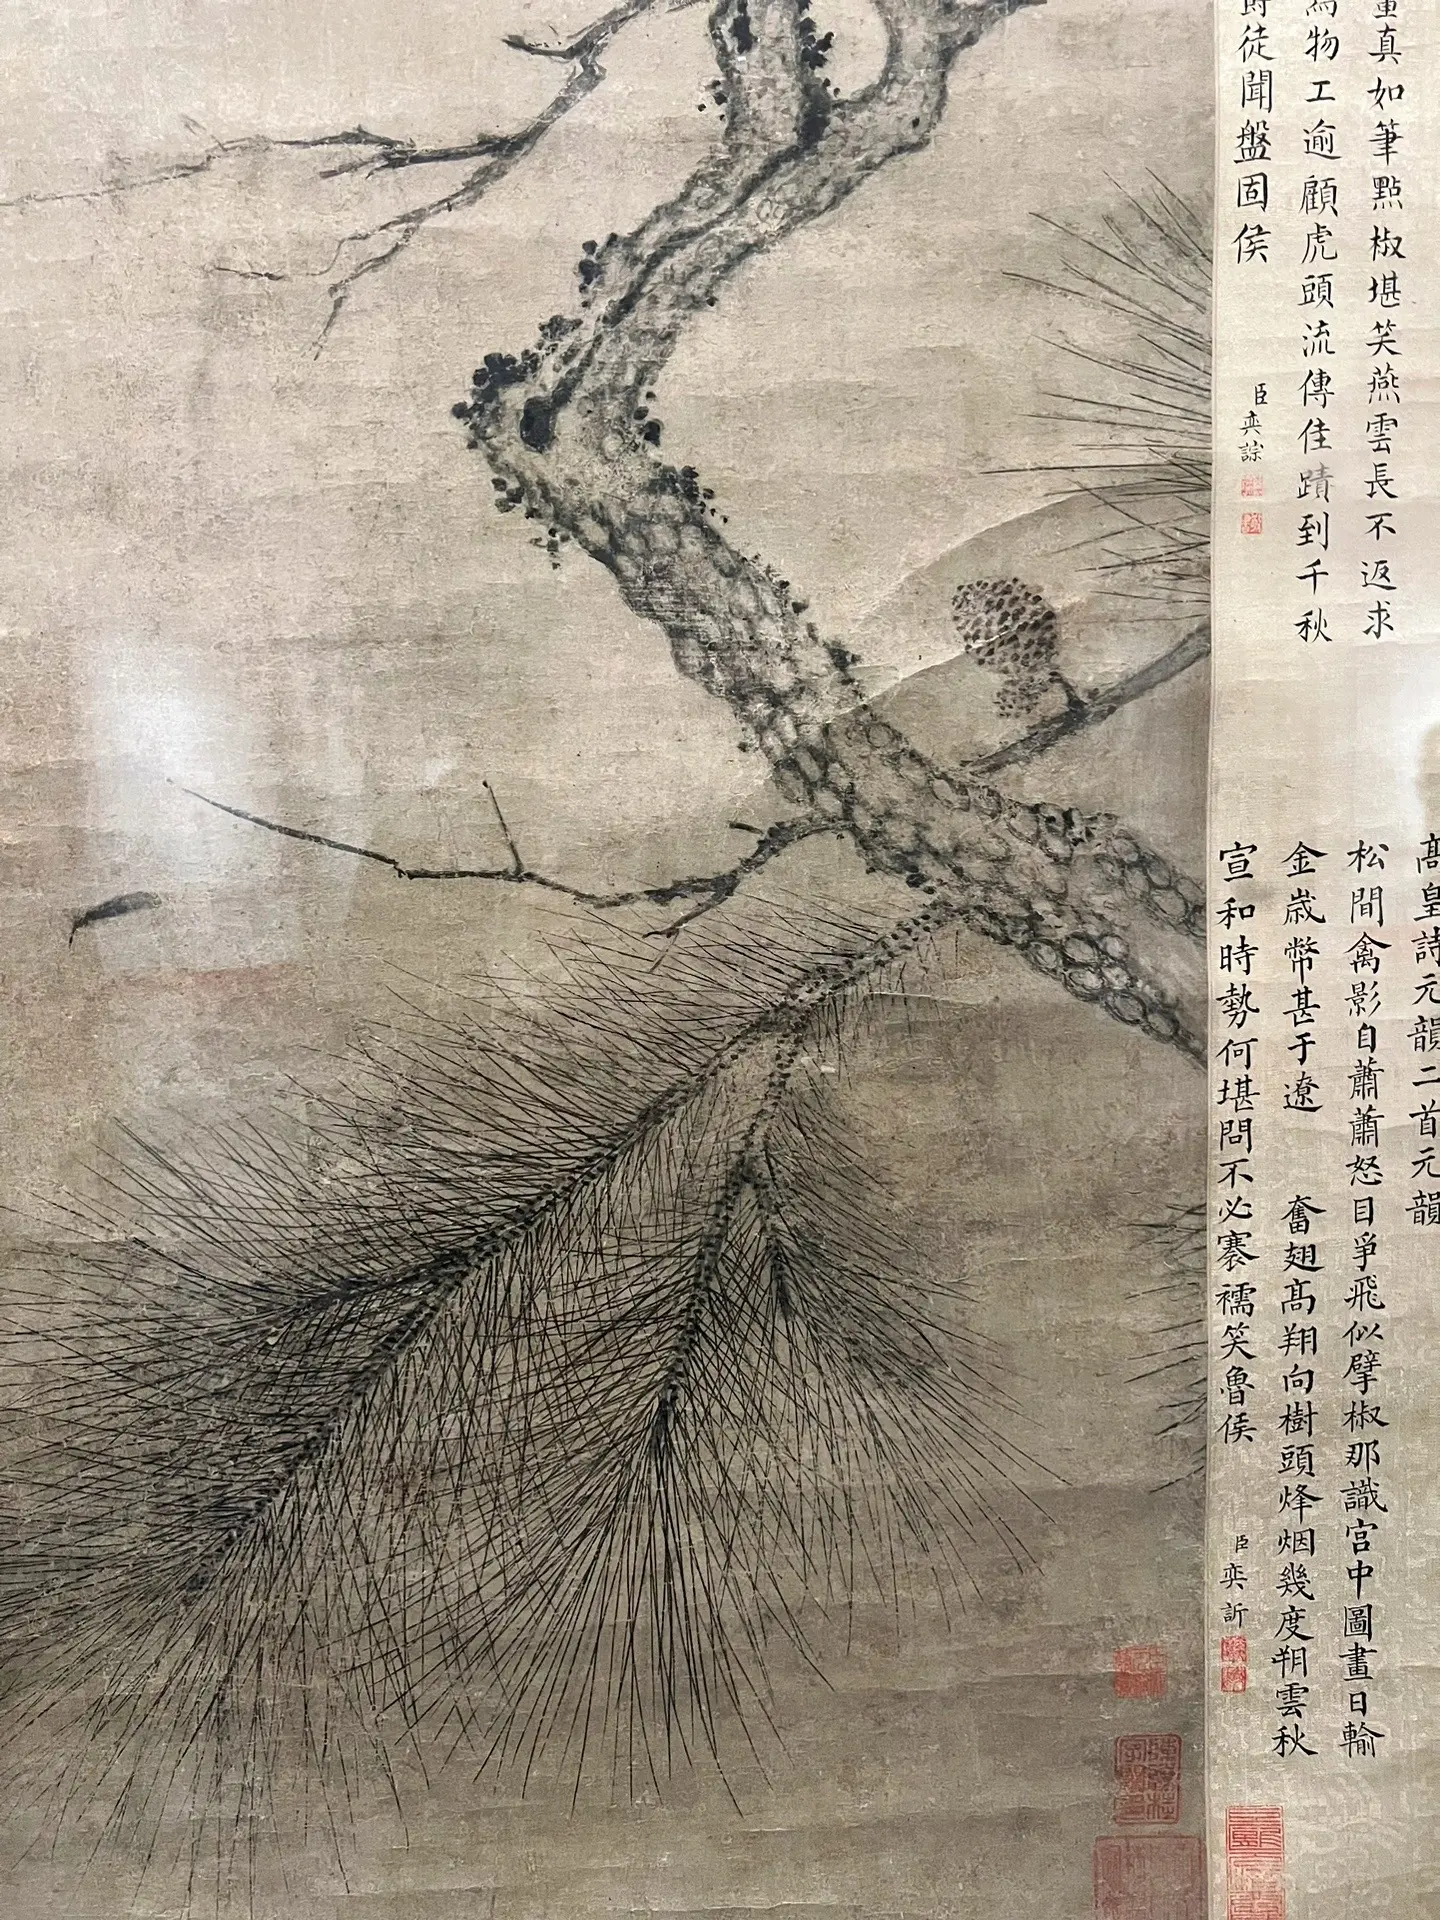 真如筆點椒堪笑燕雲長不返求
物工逾顧虎頭流傳佳蹟到千秋
徒聞盤固侯
臣奕誴
高皇詩元韻二首元韻
松間禽影自蕭蕭怒目爭飛似擘椒那識宮中圖畫日輸
金歲幣甚于遼 奮翅高翔向樹頭烽烟幾度朔雲秋
宣和時勢何堪問不必褰襦笑魯侯
臣奕訢